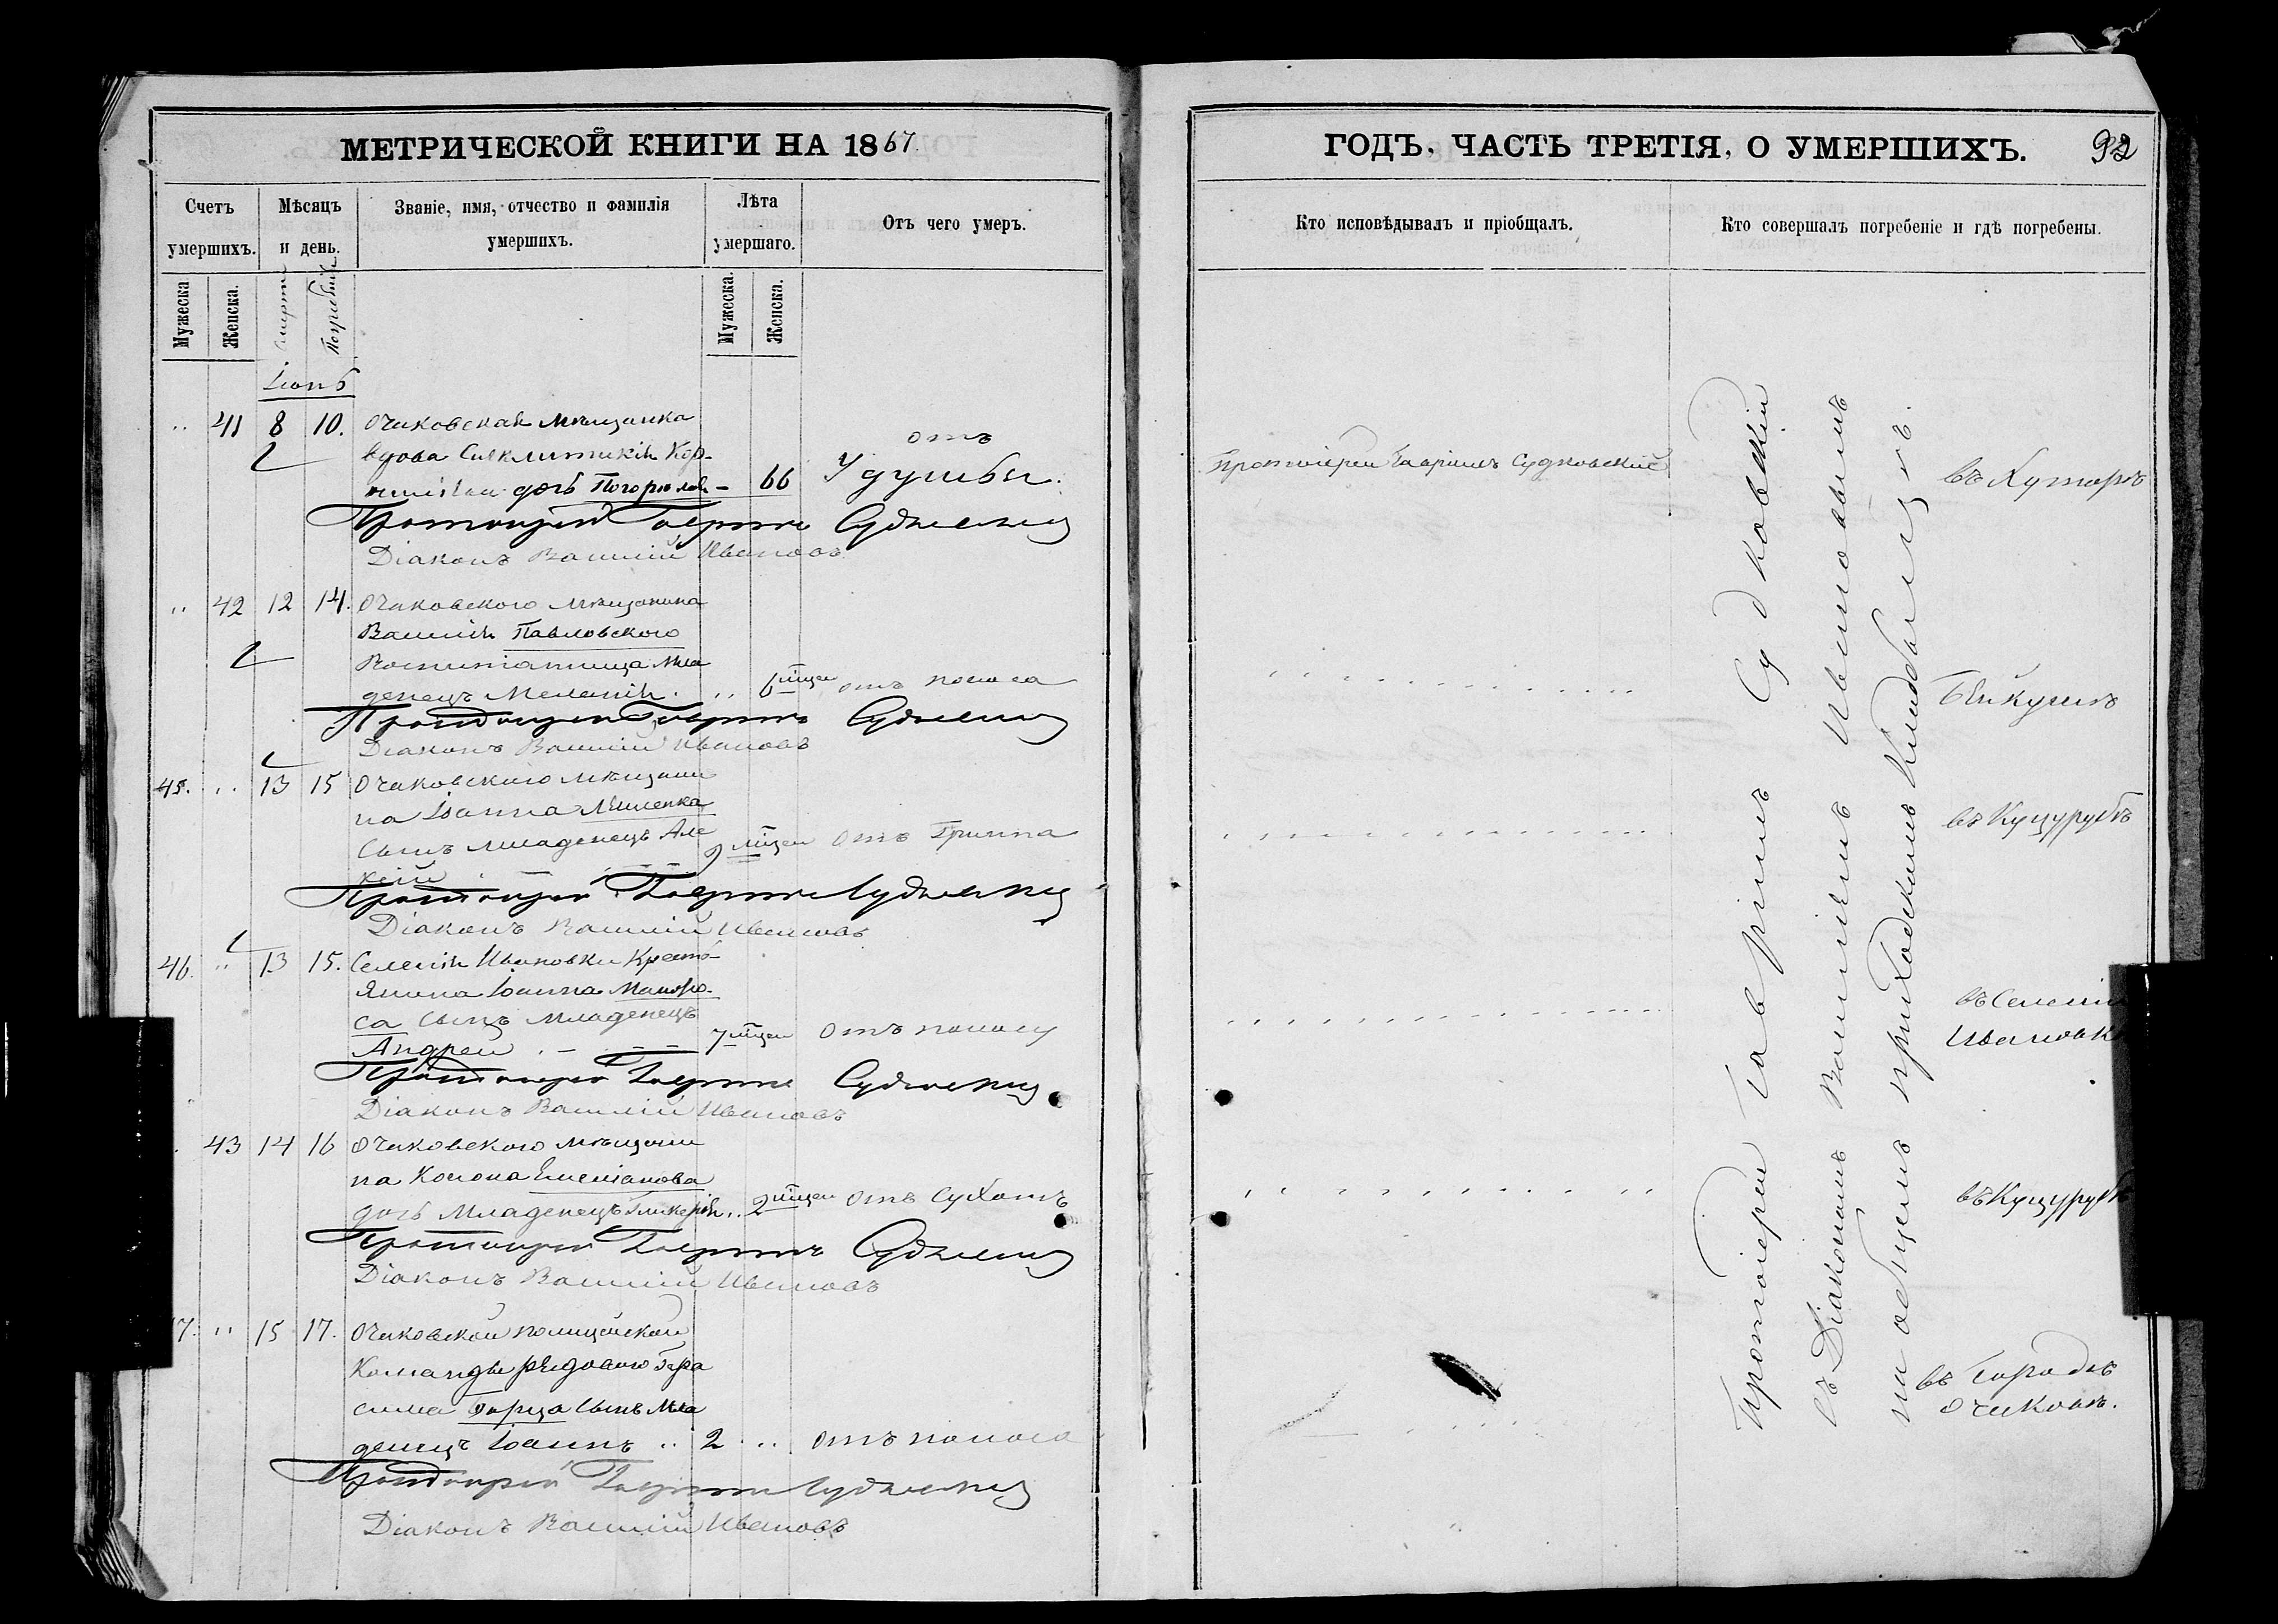 МЕТРИЧЕСКОЙ КНИГИ НА 1867.
Счетъ умершихъ.
Мѣсяцъ и день.
Званіе, имя, отчество и фамилія умершихъ.
Лѣта умершаго.
Отъ чего умеръ.
Мужеска
Женска.
Смерти
Погребенія
Мужеска.
Женска.
Іюнь
41 8 10. Очаковская мѣщанка
вдова Синклитикія Кор-
дочь Погорѣлая – 66 отъ Удушбы.
Протоіерей Гавріилъ Судковскій
Діаконъ Василій Ивановъ
42 12 14. Очаковского мѣщанина
Василія Павловского
Воспитанница мла
денецъ Меланія. 6 мцеи отъ поноса
Протоіерей Гавріилъ Судковскій
Діаконъ Василій Ивановъ
45. 13 15 Очаковского мѣщани
на Іоанна
сынъ младенецъ Але
ксій 9 мцеи отъ Гриппа
Протоіерей Гавріилъ Судковскій
Діаконъ Василій Ивановъ
46. 13 15. Селенія Ивановки Кресть-
янина Іоанна
са сынъ младенецъ
Андрей 7 мцеи отъ поносу
Протоіерей Гавріилъ Судковскій
Діаконъ Василій Ивановъ
43 14 16 Очаковского мѣщани
на Конона Емеліанова
дочь младенецъ Гликерія 2 мцеи отъ Сухотъ
Протоіерей Гавріилъ Судковскій
Діаконъ Василій Ивановъ
7. 15 17. Очаковской полицейской
команды рядового Гера
сима сынъ мла
денецъ Іоаннъ 2 отъ поноса
Протоіерей Гавріилъ Судковскій
Діаконъ Василій Ивановъ
ГОДЪ, ЧАСТЬ ТРЕТІЯ, О УМЕРШИХЪ. 92
Кто исповѣдывалъ и пріобщалъ.
Кто совершалъ погребеніе и гдѣ погребены.
Протоіерей Гавріилъ Судковскій
Протоіерей Гавріилъ Судковскій
съ Діакономъ Василіемъ Ивановымъ
на общемъ приходскомъ кладбищѣ.
въ Хуторѣ
Бейкушѣ
въ Куцурубѣ
въ Селеніи
Ивановк
въ Куцурубѣ
въ Городѣ
Очаковѣ.